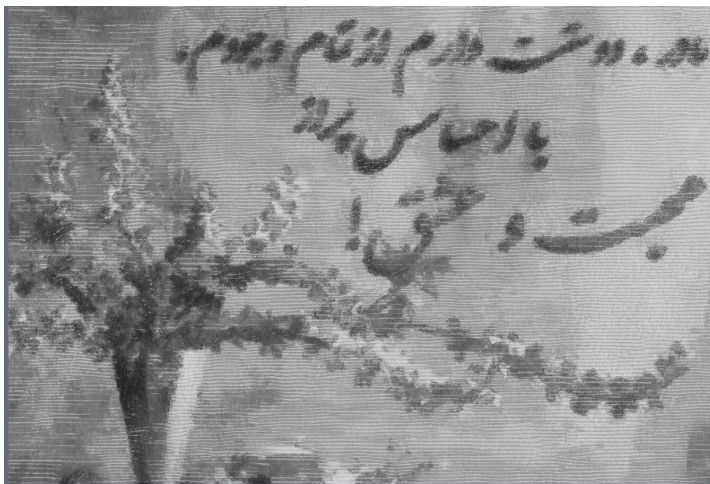 مادر، دوستت دارم از تمام وجودم.
با احساس پر از
محبت و عشق!